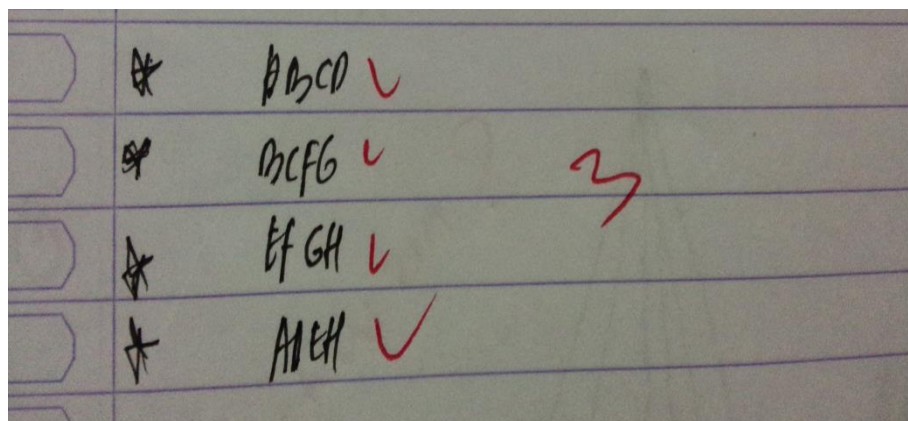 ABCD
BCFG 3
EFGH
ADEH